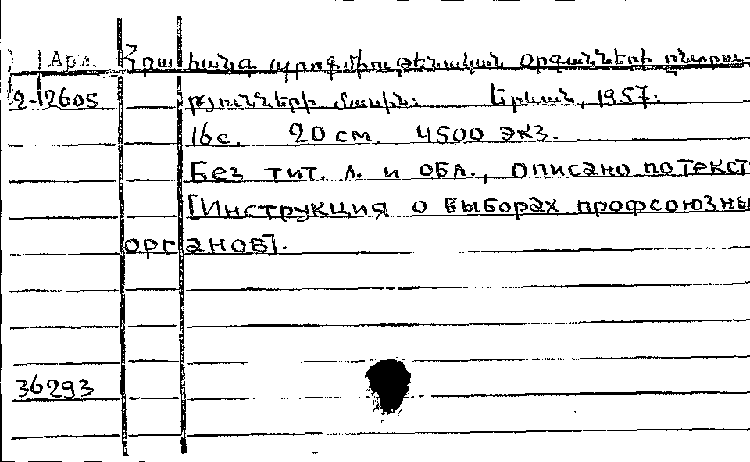 Арл. Հրահանգ պրոֆմիութենական օրգանների ընտրու-
2-12605 թյունների մասին: Երևան, 1957:
16с. 20 см. 4500 экз.
Без тит. л. и обл., описано по текст
[Инструкция о выборах профсоюзны
органов].
36293